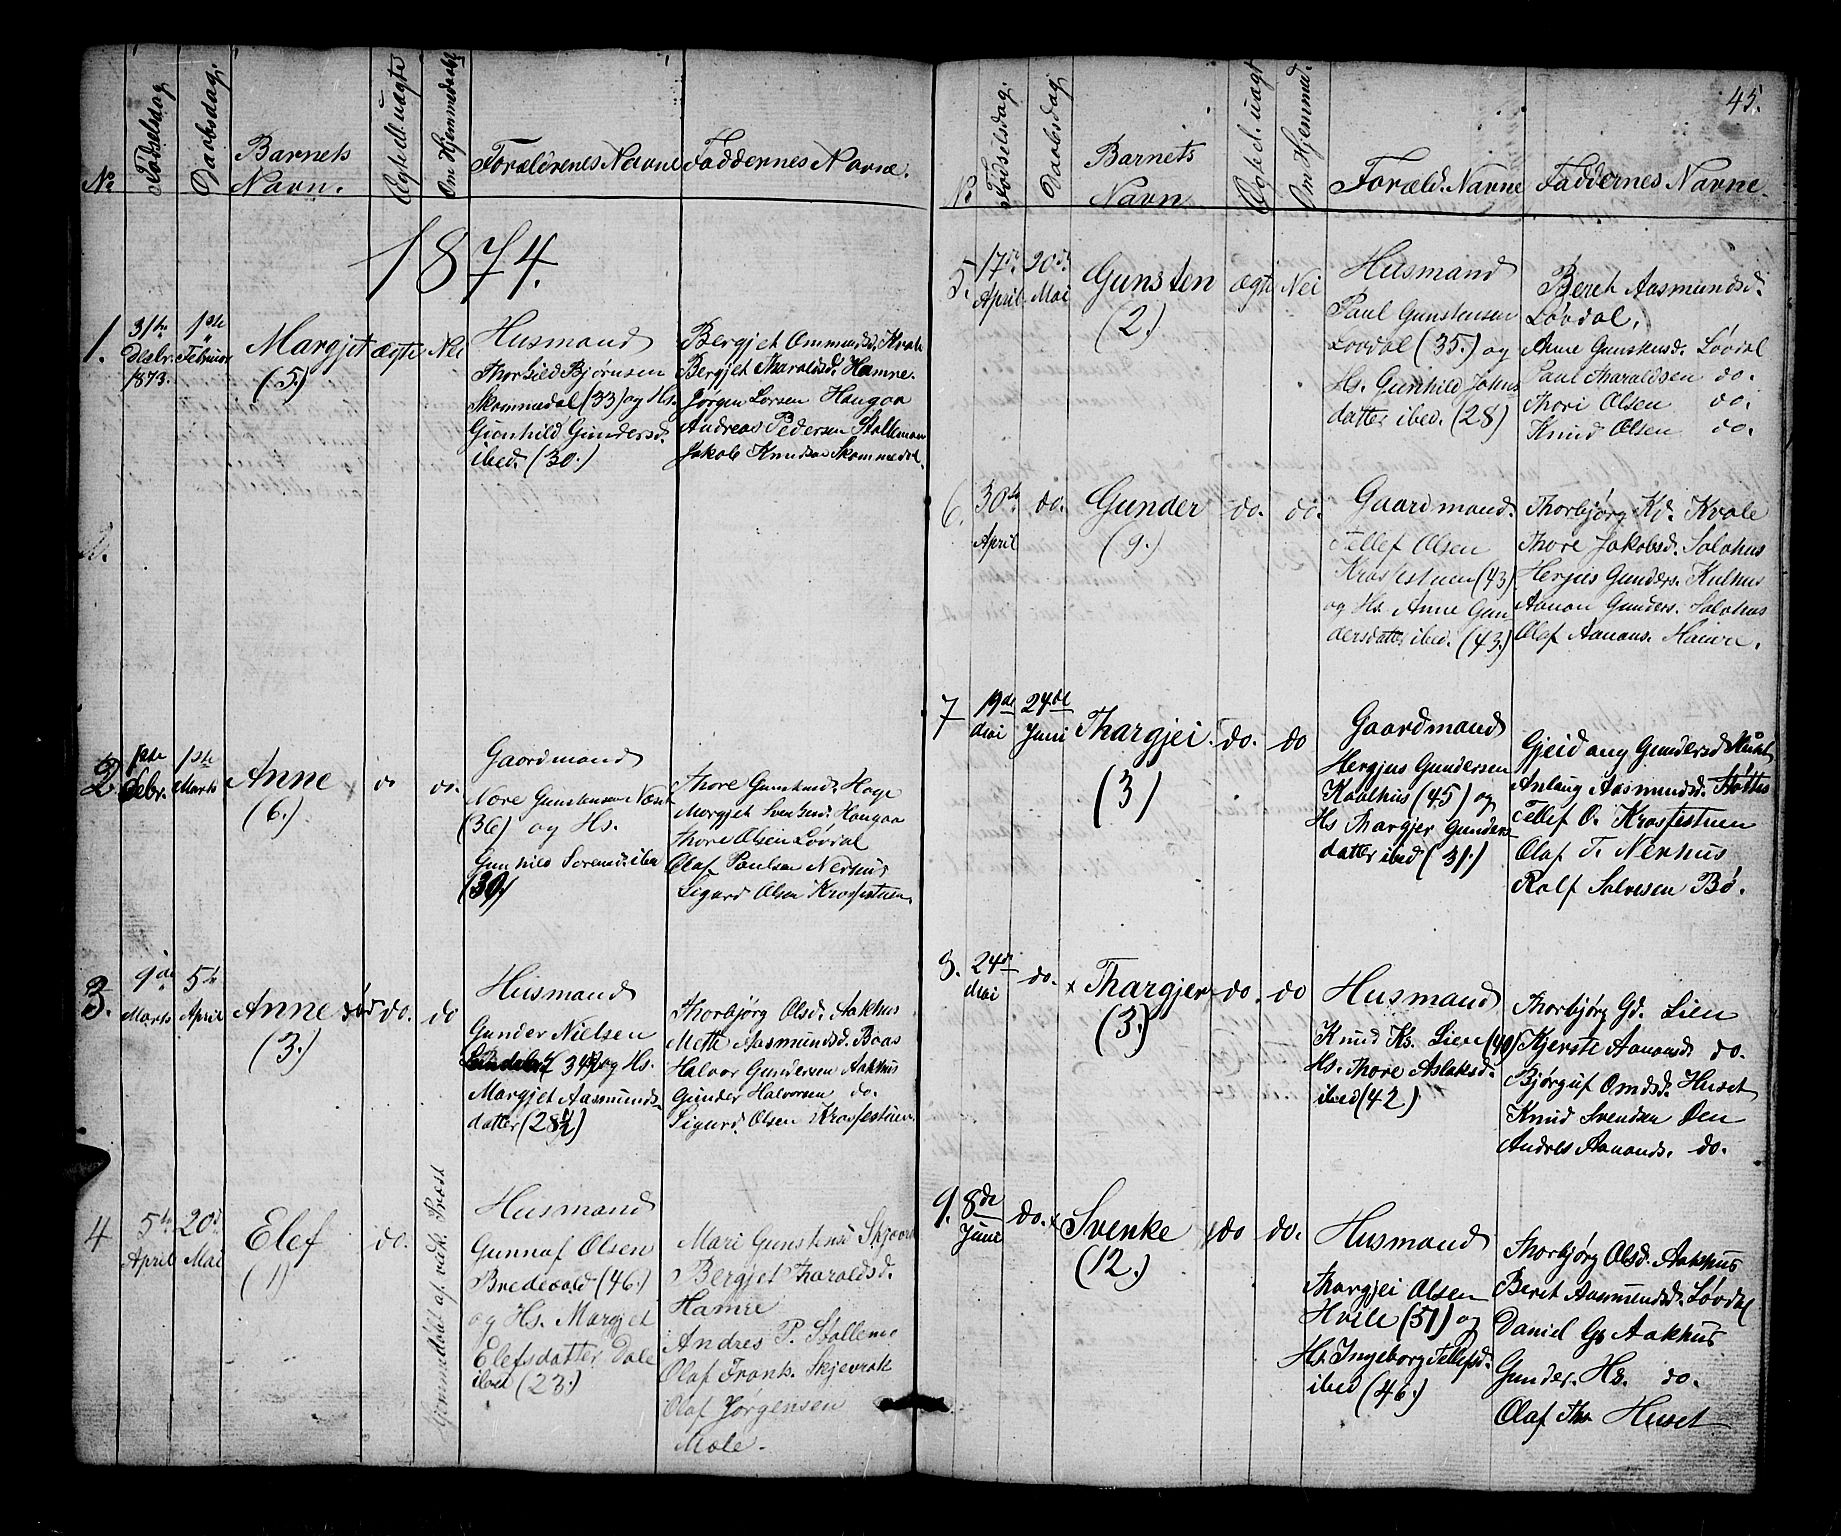 No
Fødselsdag
Daabsdag.
Barnets
Navn.
Ægte ell. uægte
Om Hjemmedøbt
Forældrenes Navne
Faddernes Navne.
1874.
1.
31te
Decbr.
1873.
1ste
Februar
Margjet
(5.)
ægte
Nei
Husmand
Thorkild Bjørnsen
Skommedal (33) og Hs.
Gunhild Gundersd.
ibed. (30.)
Bergjet Ommundsd. Kvale
Bergjet Tharaldsd. Hamre.
Jørgen Larsen Haugaa
Andreas Pedersen Stallemo
Jakob Knudsen Skommedal.
2
1ste
Febr.
1ste
Marts
Anne
(6.)
do
do.
Gaardmand
Nære Gunstensen Næset
(36) og Hs.
Gunhild Sorensd. ibd
(30)
Thore Gunstensd. Hage
Margjet Svensd. Haugaa
Thore Olsen Løvdal
Olaf Paulsen Nedhus
Sigurd Olsen Krossestuen.
3.
9de
Marts
5te
April
Anne
(3.)
do.
do
Husmand
Gunder Nielsen
34 og Hs.
Margjet Aasmunds-
datter (28½)
Thorbjørg Olsd. Aakhus
Mette Aasmundsd. Baas
Halvor Gundersen Aakhus
Gunder Halvorsen do.
Sigurd Olsen Krossestuen.
4
5te
April
20de
Mai
Elef
(1)
do.
Hjemmedøbt af vedk. Præst
Husmand
Gunnaf Olsen
Bredevald (46.)
og Hs. Margjet
Elefsdatter Dale
ibed (23.)
Mari Gunstensd. Skjævrak
Bergjet Tharaldsd.
Hamre
Andres P. Stallemo
Olaf Frants. Skjevrak
Olaf Jørgensen
Mole.
45.
No
Fødselsdag.
Daabsdag
Barnets
Navn
Ægte el. uægt
Om Hjemmed.
Foræld. Navne
Faddernes Navne
5.
17de
April
20de
Mai
Gunsten
(2.)
ægte
Nei
Husmand
Paul Gunstensen
Løvdal (35.) og
Hs. Gunhild Johns
datter ibed. (28)
Berit Aasmundsd.
Løvdal.
Anne Gunstensd. Løvdal
Paul Tharaldsen do.
Thori Olsen do.
Knud Olsen do.
6.
30te
April
do.
Gunder
(9.)
do.
do.
Gaardmand.
Tellef Olsen
Krossestuen (43)
og Hs. Anne Gun
dersdatter ibed. (43.)
Thorbjørg Kd. Kvale
Thore Jakobsd. Solohus
Herjus Gunders. Kulhus
Aanon Gunders. Solohus
Olef Aanons. Hamre.
7
19de
Mai
24de
Juni
Thargjei
(3)
do.
do
Gaardmand
Hergjus Gundersen
Kaalhus (45) og
Hs Thargjer Gunders
datter ibed (31.)
Gjeid ang Gundersd
Anlaug Aasmundsd.
Tellef O. Krossestuen
Olaf T. Nerhus
Rolf Salvesen Bø.
8.
24de
Mai
do.
Thargjer
(3.)
do.
do
Husmand
Knud Ks. Lien (40)
Hs. Thore Aslaksd.
ibed (42)
Thorbjørg Gd. Lien
Kjerste Aanonsd. do.
Bjørguf Omdsd. Huset
Knud Svendsen Øen
Andres Aanonds. do.
9.
8de
Juni
do.
Svenke
(12.)
do
do.
Husmand
Thargjei Olsen
Hvile (51) og
Hs. Ingeborg Tellefsd.
ibed (46.)
Thorbjørg Olsd. Aakhus
Berit Aasmundsd. Løvdal
Daniel Gs Aakhus
Gunder. Hs. do.
Olaf Ths. Huset